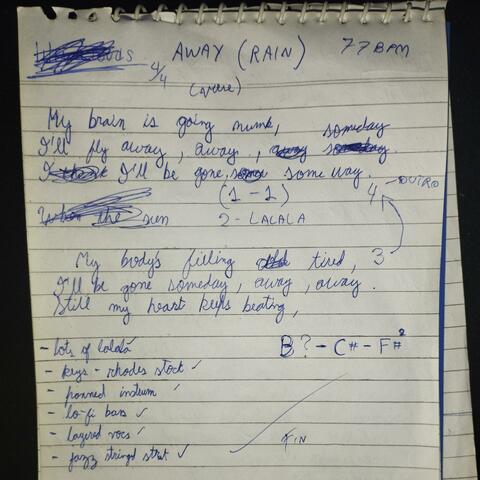 AWAY (RAIN) 77 BPM
4/4
My brain is going numb,
someday
I'll fly away, away,
I'll be gone, some way.
(1-1) 4 - OUTRO
the sun 2 - LALALA
My body's filling tired, 3
I'll be gone someday, away, away.
Still my heart keeps beating,
- lots of lalala
B? - C# - F#
- keys - rhodes stock ✓
- panned instrum ✓
- lo-fi bars ✓
- layered vocs ✓
FIN
- jazz string strat ✓